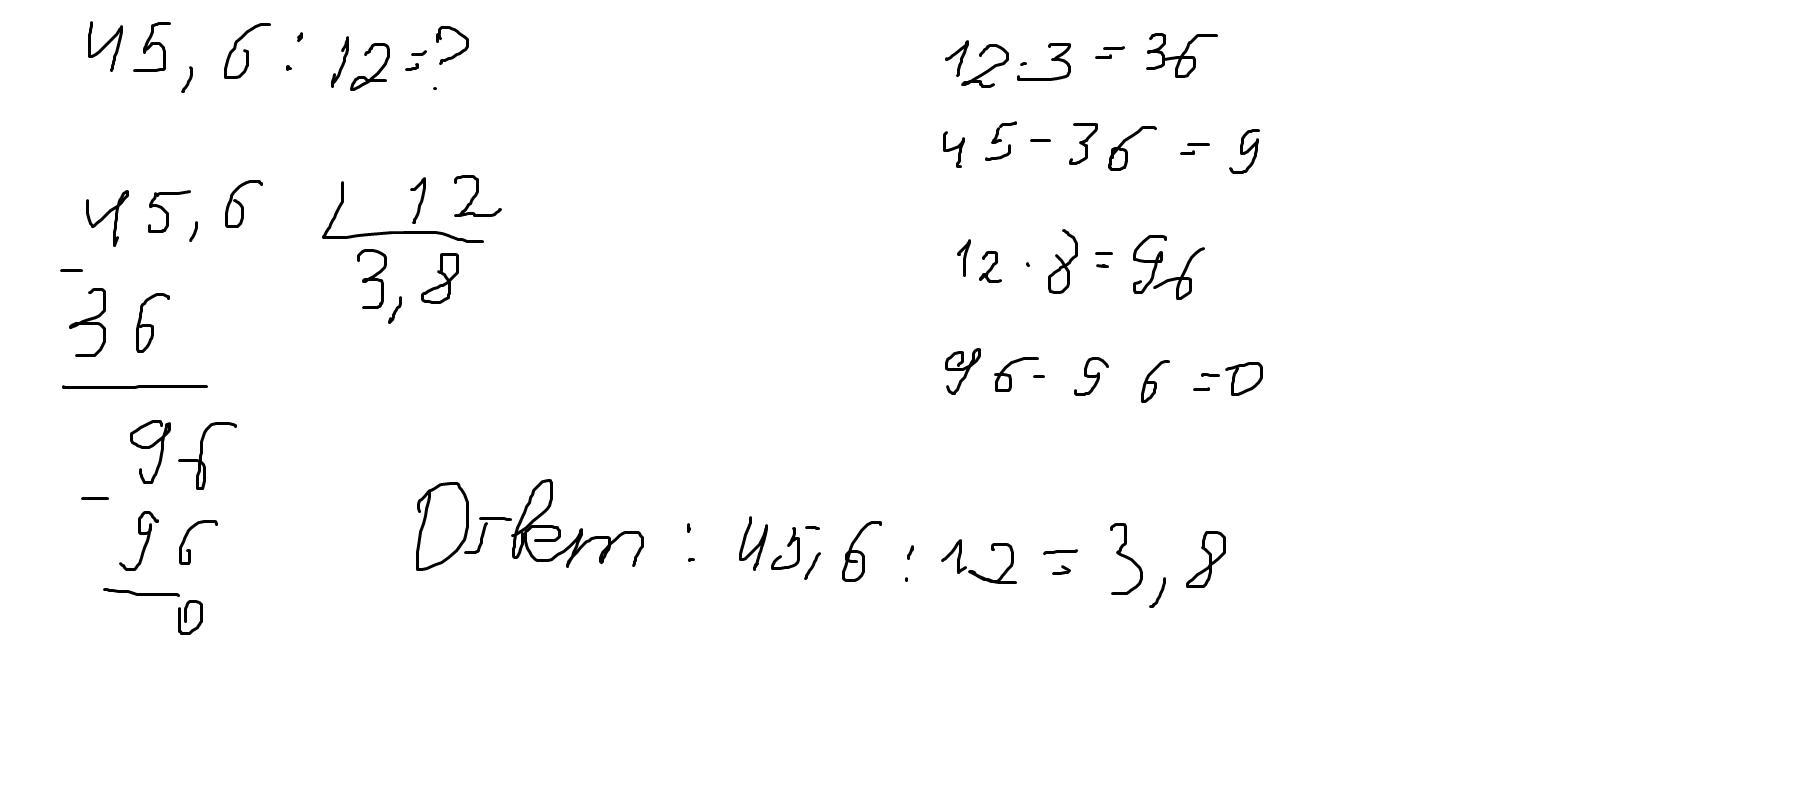 45,6 : 12 = ?
45,6 12
3,8
-
36
96
-
96
0
12 · 3 = 36
45 - 36 = 9
12 · 8 = 96
96 - 96 = 0
: 45,6 : 12 = 3,8